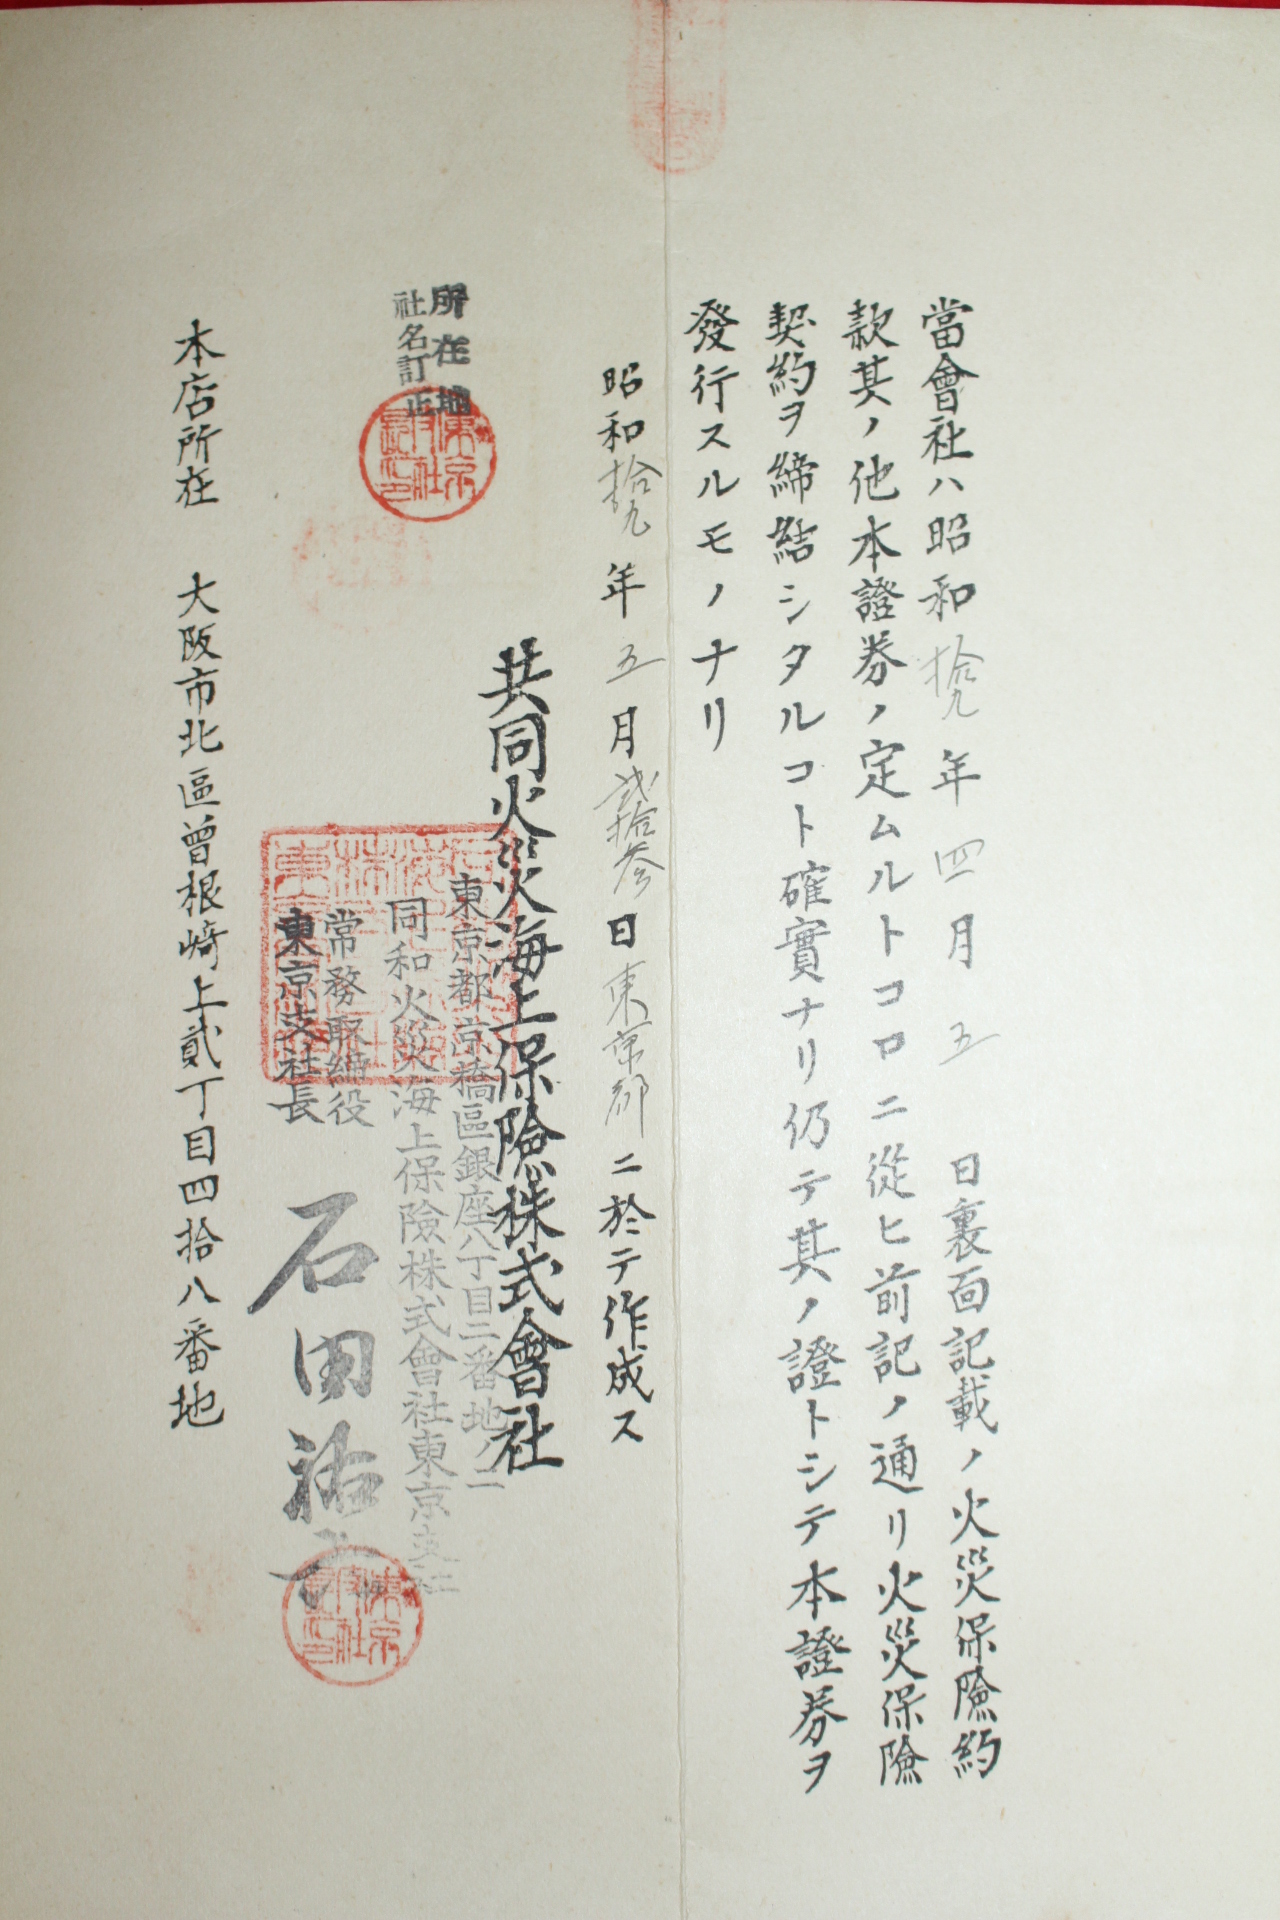 當會社ハ昭和拾九年四月五日裏面記載ノ火災保險約
款其ノ他本證券ノ定ムルトコロニ從ヒ前記ノ通リ火災保險
契約ヲ締結シタルコト確實ナリ仍テ其ノ證トシテ本證券ヲ
發行スルモノナリ
昭和拾九年五月貳拾參日東京都ニ於テ作成ス
共同火災海上保險株式會社
東京都京橋區銀座八丁目二番地ノ二
同和火災海上保險株式會社東京支社
所在地
社名訂正
常務取締役
東京支社長
石田祐
本店所在 大阪市北區曾根崎上貳丁目四拾八番地